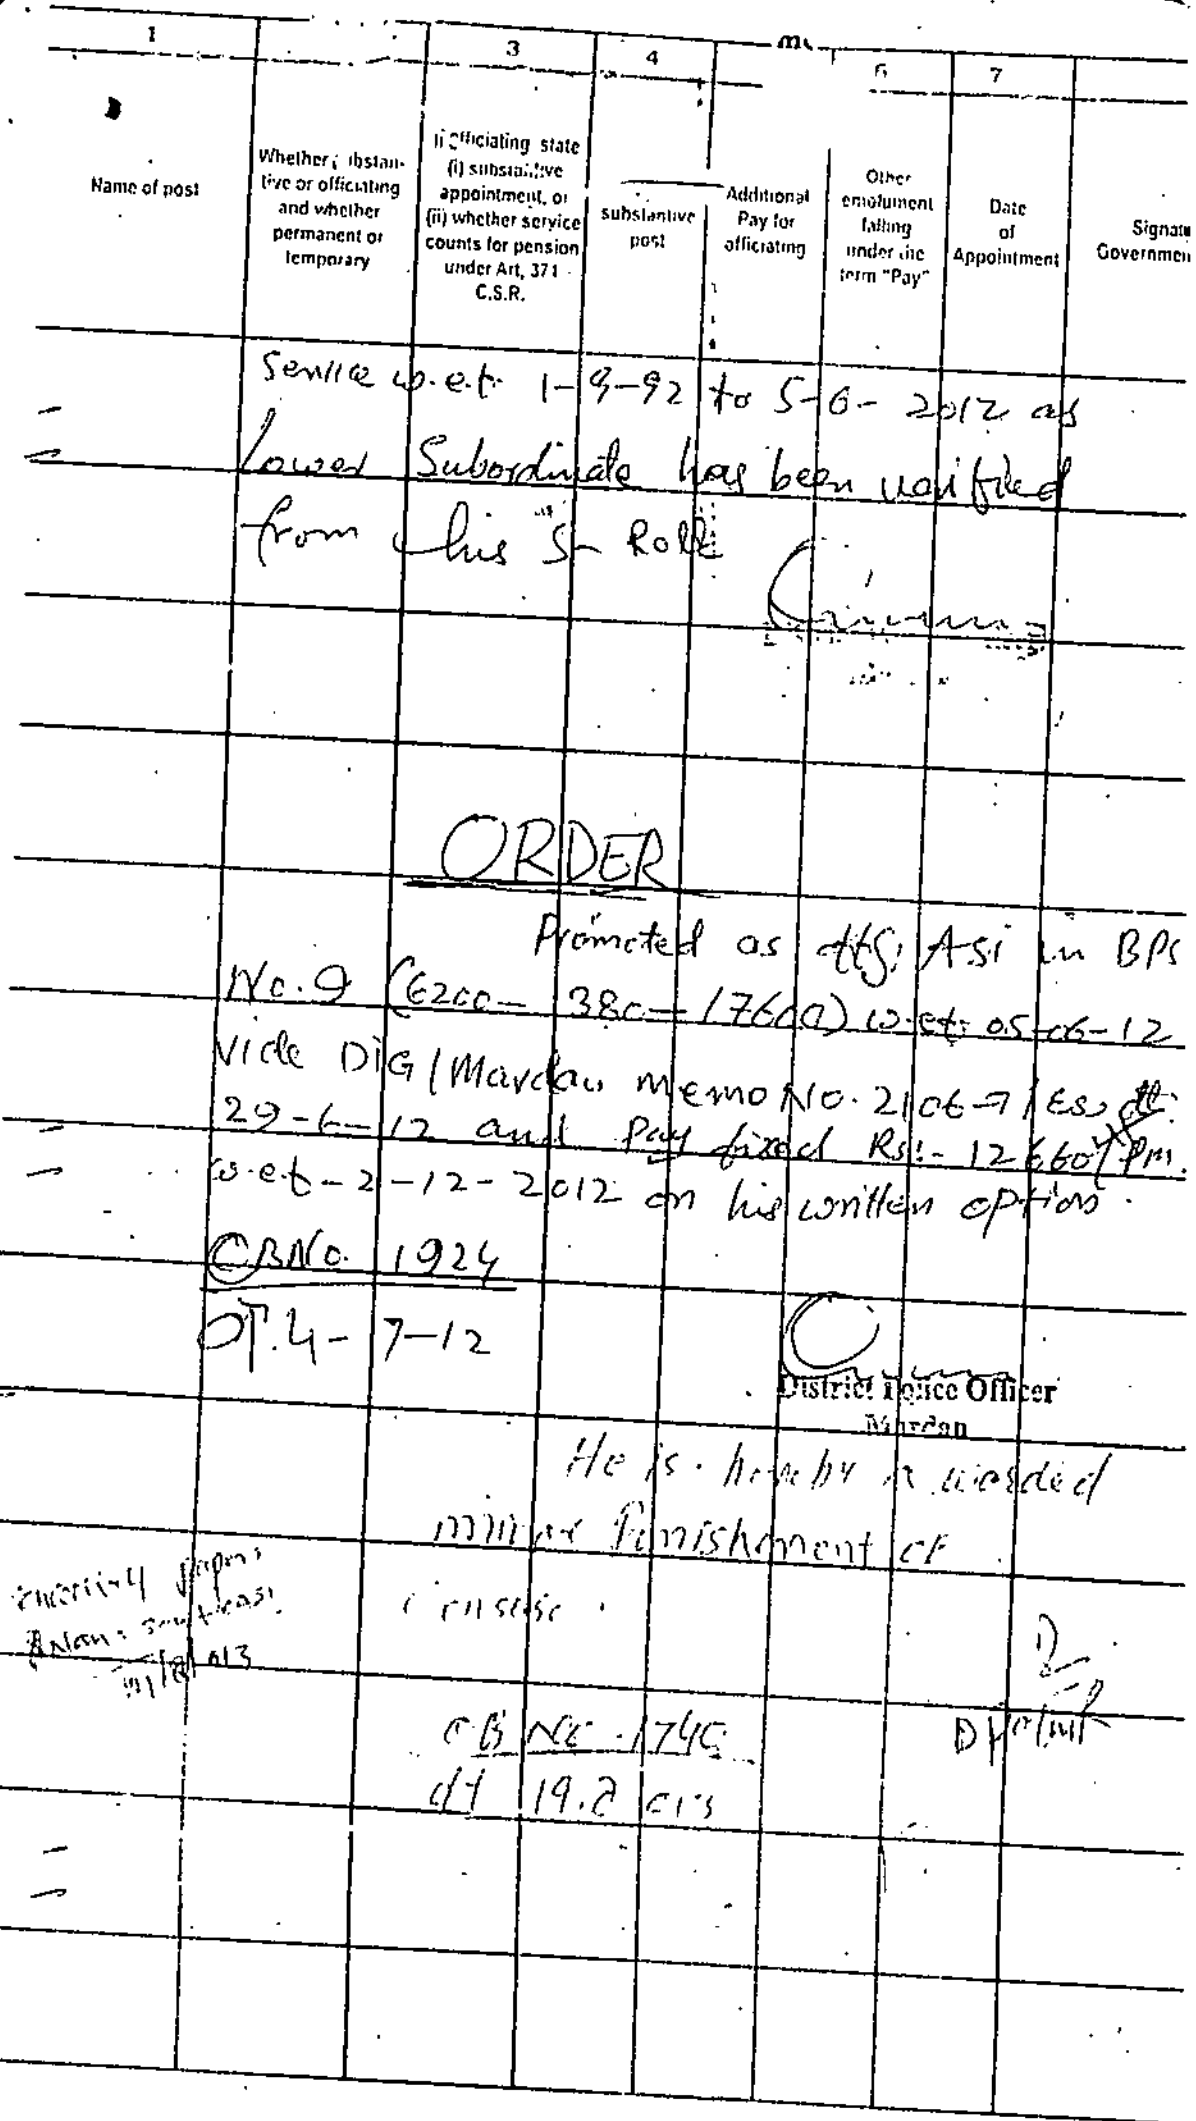 1 3 4 6 7
Name of post
Whether substan-
tive or officiating
and whether
permanent or
temporary
If officiating state
(i) substantive
appointment, or
(ii) whether service
counts for pension
under Art, 371
C.S.R.
substantive
post
Additional
Pay for
officiating
Other
emolument
falling
under the
term "Pay"
Date
of
Appointment
Signatu
Governmen
Service w.e.f. 1-9-92 to 5-6-2012 as
Lower Subordinate has been verified
from his S-Roll
ORDER
Promoted as offg: ASi in BPS
No.9 (6200-380-17600) w.ef: 05-06-12
vide DIG/Mardan memo No. 2106-7/ES, dt:
29-6-12 and Pay fixed Rs:- 12660/ Pm.
w.e.f-2-12-2012 on his written option.
OBNo. 1924
DT.4-7-12
District Police Officer
Mardan
He is hereby awarded
minor Punishment of
OB No
dt 19.8